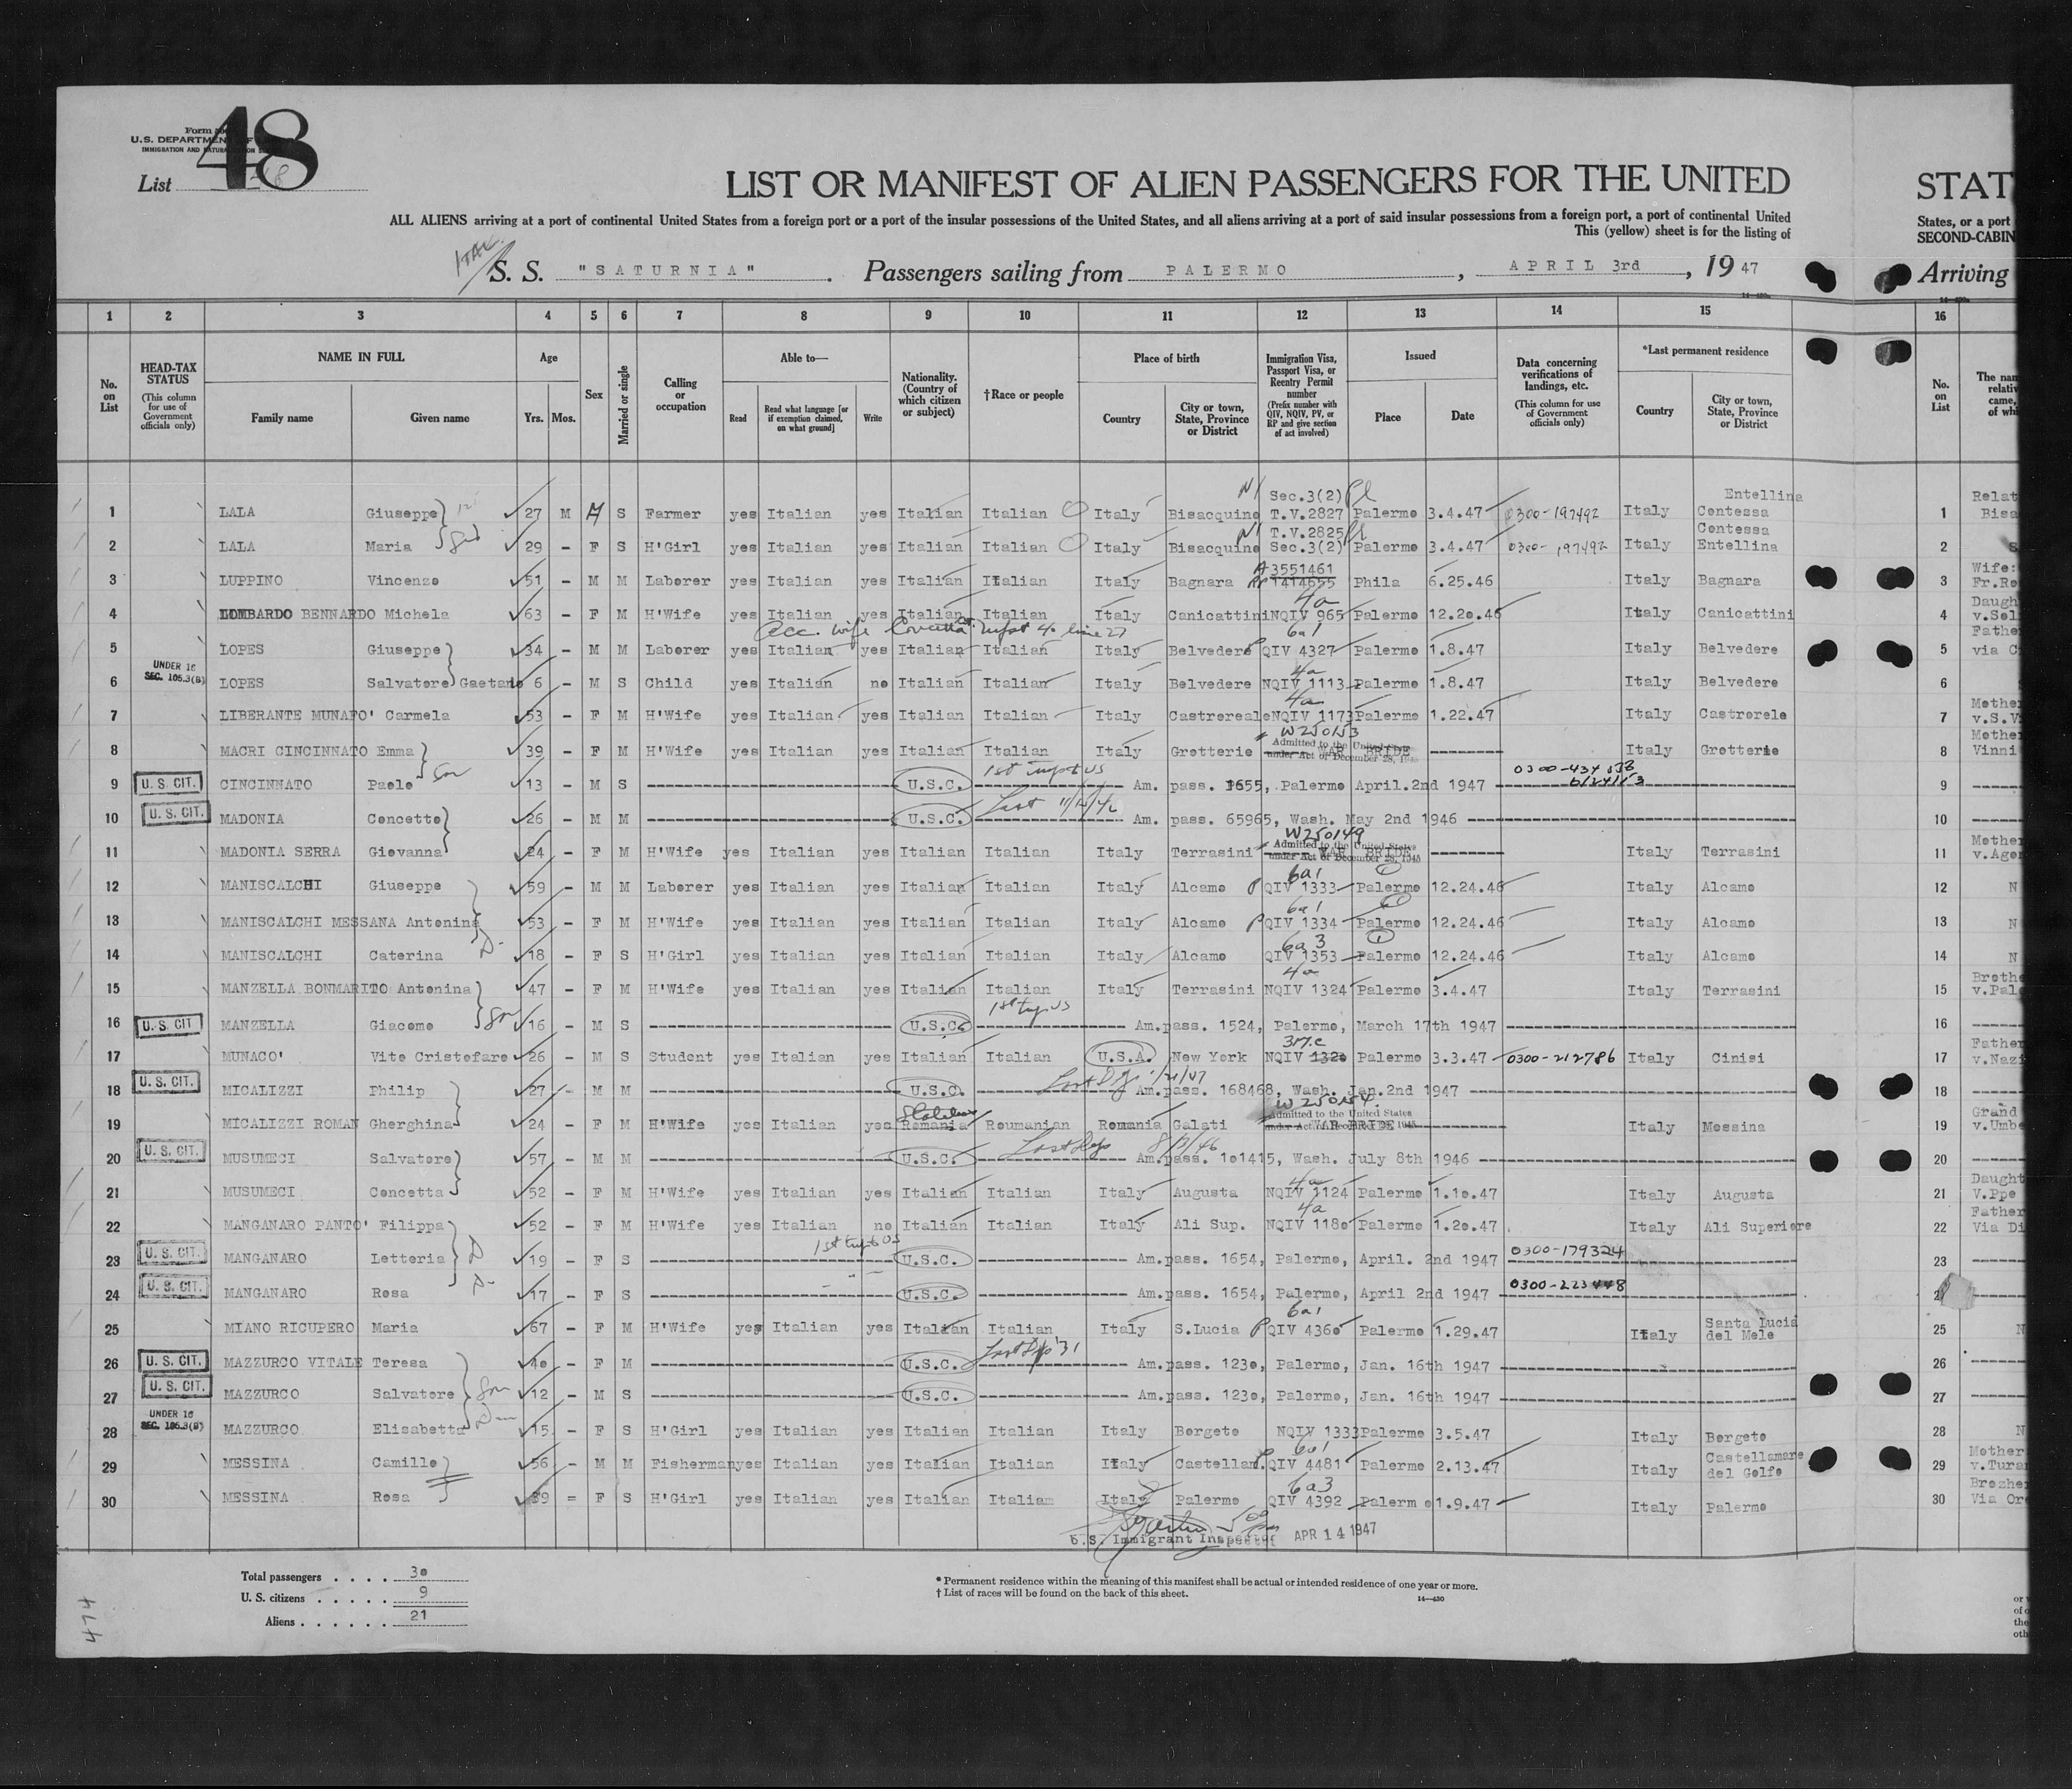 Form
U.S. DEPARTMENT OF
IMMIGRATION AND NATURALIZATION
48
List 48
LIST OR MANIFEST OF ALIEN PASSENGERS FOR THE UNITED
STAT
ALL ALIENS arriving at a port of continental United States from a foreign port or a port of the insular possessions of the United States, and all aliens arriving at a port of said insular possessions from a foreign port, a port of continental United
States, or a port
This (yellow) sheet is for the listing of
SECOND-CABIN
S. S. "SATURNIA". Passengers sailing from PALERMO, APRIL 3rd, 19 47
Arriving
1 2 3 4 5 6 7 8 9 10 11 12 13 14 15 16
No. on List
HEAD-TAX STATUS (This column for use of Government officials only)
NAME IN FULL Family name Given name
Age Yrs. Mos.
Sex
Married or single
Calling or occupation
Able to— Read Read what language [or if exemption claimed, on what ground] Write
Nationality. (Country of which citizen or subject)
†Race or people
Place of birth Country City or town, State, Province or District
Immigration Visa, Passport Visa, or Reentry Permit number (Prefix number with QIV, NQIV, PV, or RP and give section of act involved)
Issued Place Date
Data concerning verifications of landings, etc. (This column for use of Government officials only)
*Last permanent residence Country City or town, State, Province or District
No. on List
The nam relativ came, of whi
1 LALA Giuseppe 27 M M S Farmer yes Italian yes Italian Italian Italy Bisacquino Sec.3(2) T.V.2827 Palermo 3.4.47 0300-197492 Italy Entellina Contessa 1 Relat Bisa
2 LALA Maria 29 - F S H'Girl yes Italian yes Italian Italian Italy Bisacquino T.V.2825 Sec.3(2) Palermo 3.4.47 0300-197492 Italy Contessa Entellina 2 S
3 LUPPINO Vincenzo 51 - M M Laborer yes Italian yes Italian Italian Italy Bagnara A 3551461 RP 1414655 Phila 6.25.46 Italy Bagnara 3 Wife: Fr.Ro
4 LOMBARDO BENNARDO Michela 63 - F M H'Wife yes Italian yes Italian Italian Italy Canicattini 4a NQIV 965 Palermo 12.20.46 Italy Canicattini 4 Daugh v.Sol
Acc. wife
5 LOPES Giuseppe 34 - M M Laborer yes Italian yes Italian Italian Italy Belvedere 6a1 QIV 4327 Palermo 1.8.47 Italy Belvedere 5 Fathe via C
UNDER 16 SEC. 105.3(B)
6 LOPES Salvatore Gaetano 6 - M S Child yes Italian no Italian Italian Italy Belvedere 4a NQIV 1113 Palermo 1.8.47 Italy Belvedere 6
7 LIBERANTE MUNAFO' Carmela 53 - F M H'Wife yes Italian yes Italian Italian Italy Castroreale 4a NQIV 1173 Palermo 1.22.47 Italy Castrorele 7 Mothe v.S.V
8 MACRI CINCINNATO Emma 39 - F M H'Wife yes Italian yes Italian Italian Italy Grotterie W250153 Admitted to the United States under Act of December 28, 1945 WAR BRIDE Italy Grotterie 8 Mothe Vinni
9 U. S. CIT. CINCINNATO Paolo son 13 - M S U.S.C. Am. pass. 1655, Palermo April.2nd 1947 9
10 U. S. CIT. MADONIA Concetto 26 - M M U.S.C. Am. pass. 65965, Wash. May 2nd 1946 10
11 MADONIA SERRA Giovanna 24 - F M H'Wife yes Italian yes Italian Italian Italy Terrasini W250149 Admitted to the United States under Act of December 28, 1945 WAR BRIDE Italy Terrasini 11 Mothe v.Agos
12 MANISCALCHI Giuseppe 59 - M M Laborer yes Italian yes Italian Italian Italy Alcamo 6a1 QIV 1333 Palermo 12.24.46 Italy Alcamo 12 N
13 MANISCALCHI MESSANA Antonina 53 - F M H'Wife yes Italian yes Italian Italian Italy Alcamo 6a1 QIV 1334 Palermo 12.24.46 Italy Alcamo 13 N
14 MANISCALCHI Caterina 18 - F S H'Girl yes Italian yes Italian Italian Italy Alcamo 6a3 QIV 1353 Palermo 12.24.46 Italy Alcamo 14 N
15 MANZELLA BONMARITO Antonina 47 - F M H'Wife yes Italian yes Italian Italian Italy Terrasini 4a NQIV 1324 Palermo 3.4.47 Italy Terrasini 15 Brothe v.Pal
16 U. S. CIT MANZELLA Giacomo son 16 - M S U.S.C. Am.pass. 1524, Palermo, March 17th 1947 16
17 MUNACO' Vito Cristofaro 26 - M S Student yes Italian yes Italian Italian U.S.A. New York NQIV 1320 Palermo 3.3.47 0300-212786 Italy Cinisi 17 Father v.Nazi
18 U. S. CIT. MICALIZZI Philip 27 - M M U.S.C. Am.pass. 168468, Wash. Jan.2nd 1947 18
19 MICALIZZI ROMAN Gherghina 24 - F M H'Wife yes Italian yes Romania Roumanian Romania Galati W250154 Admitted to the United States WAR BRIDE Italy Messina 19 Grand v.Umbe
20 U. S. CIT. MUSUMECI Salvatore 57 - M M U.S.C. Last Dep 8/3/46 Am.pass. 101415, Wash. July 8th 1946 20
21 MUSUMECI Concetta 52 - F M H'Wife yes Italian yes Italian Italian Italy Augusta 4a NQIV 1124 Palermo 1.10.47 Italy Augusta 21 Daught V.Ppe
22 MANGANARO PANTO' Filippa 52 - F M H'Wife yes Italian no Italian Italian Italy Ali Sup. 4a NQIV 1180 Palermo 1.20.47 Italy Ali Superiore 22 Father Via Di
23 U. S. CIT. MANGANARO Letteria 19 - F S U.S.C. Am.pass. 1654, Palermo, April. 2nd 1947 0300-179324 23
24 U. S. CIT. MANGANARO Rosa 17 - F S U.S.C. Am.pass. 1654, Palermo, April 2nd 1947 0300-223448
25 MIANO RICUPERO Maria 67 - F M H'Wife yes Italian yes Italian Italian Italy S.Lucia 6a1 QIV 4360 Palermo 1.29.47 Italy Santa Lucia del Mele 25 N
26 U. S. CIT. MAZZURCO VITALE Teresa 40 - F M U.S.C. Am.pass. 1230, Palermo, Jan. 16th 1947 26
27 U. S. CIT. MAZZURCO Salvatore son 12 - M S U.S.C. Am.pass. 1230, Palermo, Jan. 16th 1947 27
UNDER 16 SEC. 105.3(B)
28 MAZZURCO Elisabetta 15 - F S H'Girl yes Italian yes Italian Italian Italy Borgeto NQIV 1333 Palermo 3.5.47 Italy Borgeto 28 N
29 MESSINA Camillo 56 - M M Fisherman yes Italian yes Italian Italian Italy Castellam. 6a1 QIV 4481 Palermo 2.13.47 Italy Castellamare del Golfo 29 Mother v.Tura
30 MESSINA Rosa F S H'Girl yes Italian yes Italian Italian Italy Palermo 6a3 QIV 4392 Palermo 1.9.47 Italy Palermo 30 Brozhe Via Or
U.S. Immigrant Inspector APR 14 1947
Total passengers . . . . 30
U. S. citizens . . . . . 9
Aliens . . . . . . 21
* Permanent residence within the meaning of this manifest shall be actual or intended residence of one year or more.
† List of races will be found on the back of this sheet.
14—430
474